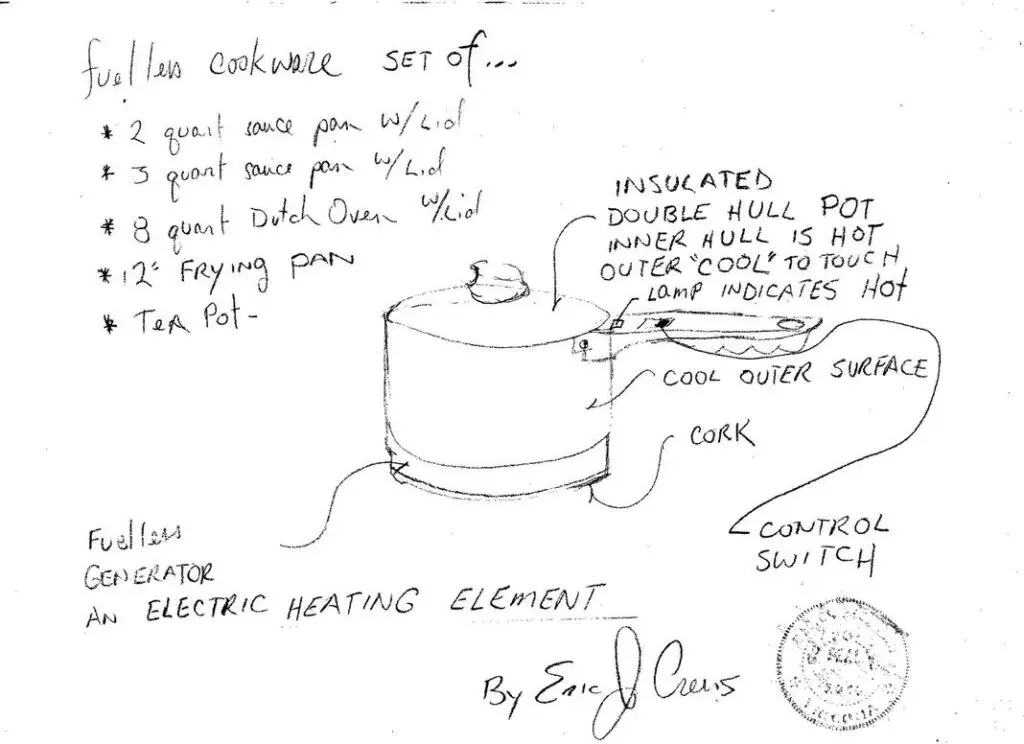 fuelless cookware SET of...
* 2 quart sauce pan w/Lid
* 3 quart sauce pan w/Lid
* 8 quart Dutch Oven w/Lid
* 12" FRYING PAN
* TEA Pot -
INSULATED
DOUBLE HULL POT
INNER HULL IS HOT
OUTER "COOL" TO TOUCH
Lamp INDICATES HOT
COOL OUTER SURFACE
CORK
CONTROL
SWITCH
Fuelless
GENERATOR
AN ELECTRIC HEATING ELEMENT
By Eric J